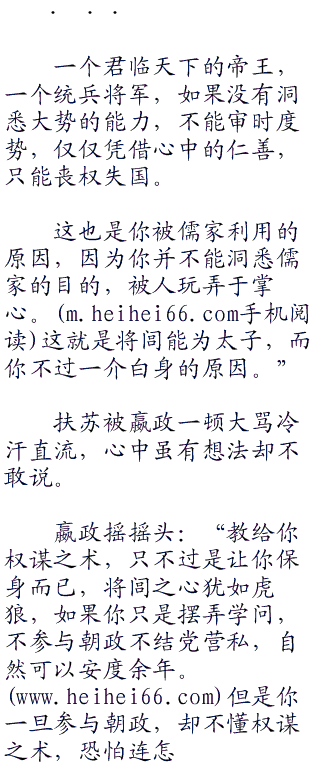 · · ·
一个君临天下的帝王，
一个统兵将军，如果没有洞
悉大势的能力，不能审时度
势，仅仅凭借心中的仁善，
只能丧权失国。
这也是你被儒家利用的
原因，因为你并不能洞悉儒
家的目的，被人玩弄于掌
心。(m.heihei66.com手机阅
读)这就是将闾能为太子，而
你不过一个白身的原因。”
扶苏被嬴政一顿大骂冷
汗直流，心中虽有想法却不
敢说。
嬴政摇摇头：“教给你
权谋之术，只不过是让你保
身而已，将闾之心犹如虎
狼，如果你只是摆弄学问，
不参与朝政不结党营私，自
然可以安度余年。
(www.heihei66.com)但是你
一旦参与朝政，却不懂权谋
之术，恐怕连怎